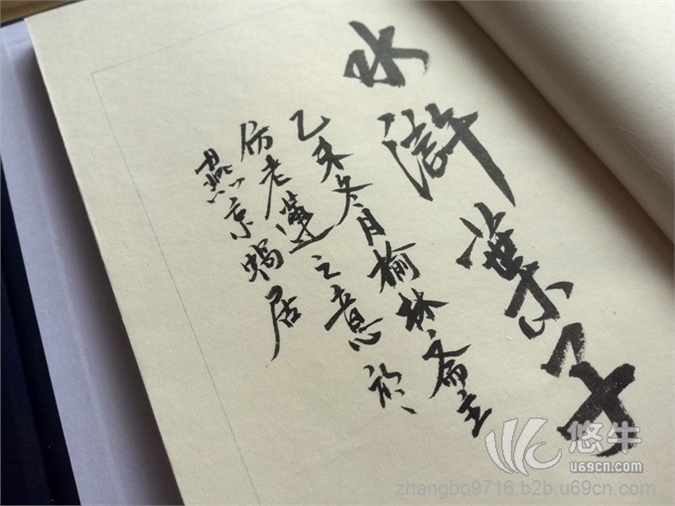 水滸葉子
乙未冬月榆林斋主
仿老蓮之意於
燕京蝸居
悠牛
u69cn.com
zhangbo9716.b2b.u69cn.com